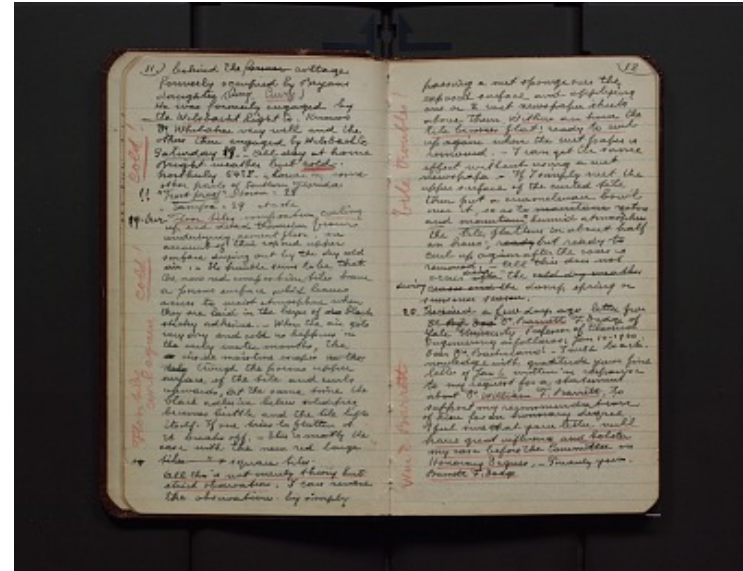 11.) behind the former cottage
formerly occupied by Bryans
daughter (Amy Curry)
He was formerly engaged by
the Welsbach Light Co. Knows
Dr Whitaker very well and the
other then engaged by Welsbach Co.
Saturday 19. - All day at home
Bright weather but cold.
in some
other parts of Southern Florida
!! "Frost prog"
Tampa - 39
Floor tiles composition, curling
up and detach themselves from
underlying cement floor in
account of their exposed upper
surface drying out by the dry cold
air. - The trouble seems to be that
the new red composition tiles have
a porous surface which leaves
access to moist atmosphere when
they are laid in the layer of black
sticky adhesive. - When the air gets
very dry and cold as happens in
the early winter months, the
inside moisture evaporates
through the porous upper
surface of the tile and curls
upwards, at the same time the
black adhesive below solidifies
becomes brittle and the tile lifts
itself. If one tries to flatten it
it breaks off. - This is mostly the
case with the new red large
tiles square tiles.
All this is not merely theory but
strict observation. I can reverse
the observation by simply
cold!
cold!
Floor tiles curl again
12
passing a wet sponge over the
exposed surface and applying
one or 2 wet newspaper sheets
above them. Within an hour the
tile becomes flat: ready to curl
up again when the wet paper is
removed. - I can get the same
effect without using a wet
newspaper - If I simply wet the
upper surface of the curled tile
then put a bowl
over it, so as to
and maintain humid atmosphere
the tile flattens in about half
an hour, but ready to
curl up again after the cover is
removed. All this does not
occur the cold dry weather
during the damp, spring or
summer season.
20. Received a few days ago letter from
Dr. Barnett F. Dodge of
Yale University Professor of Chemical
Engineering as follows: Jan 10-1952
Dear Dr. Baekeland: - I wish to ack-
nowledge with gratitude your fine
letter of Jan 6 written in response
to my request for a statement
about Dr. William T. Barrett, to
support my recommendation
of him for an honorary degree.
I feel sure that your letter will
have great influence and bolster
my case before the Committee on
Honorary Degrees. - Sincerely yours
Barnett F. Dodge
Tile troubles!